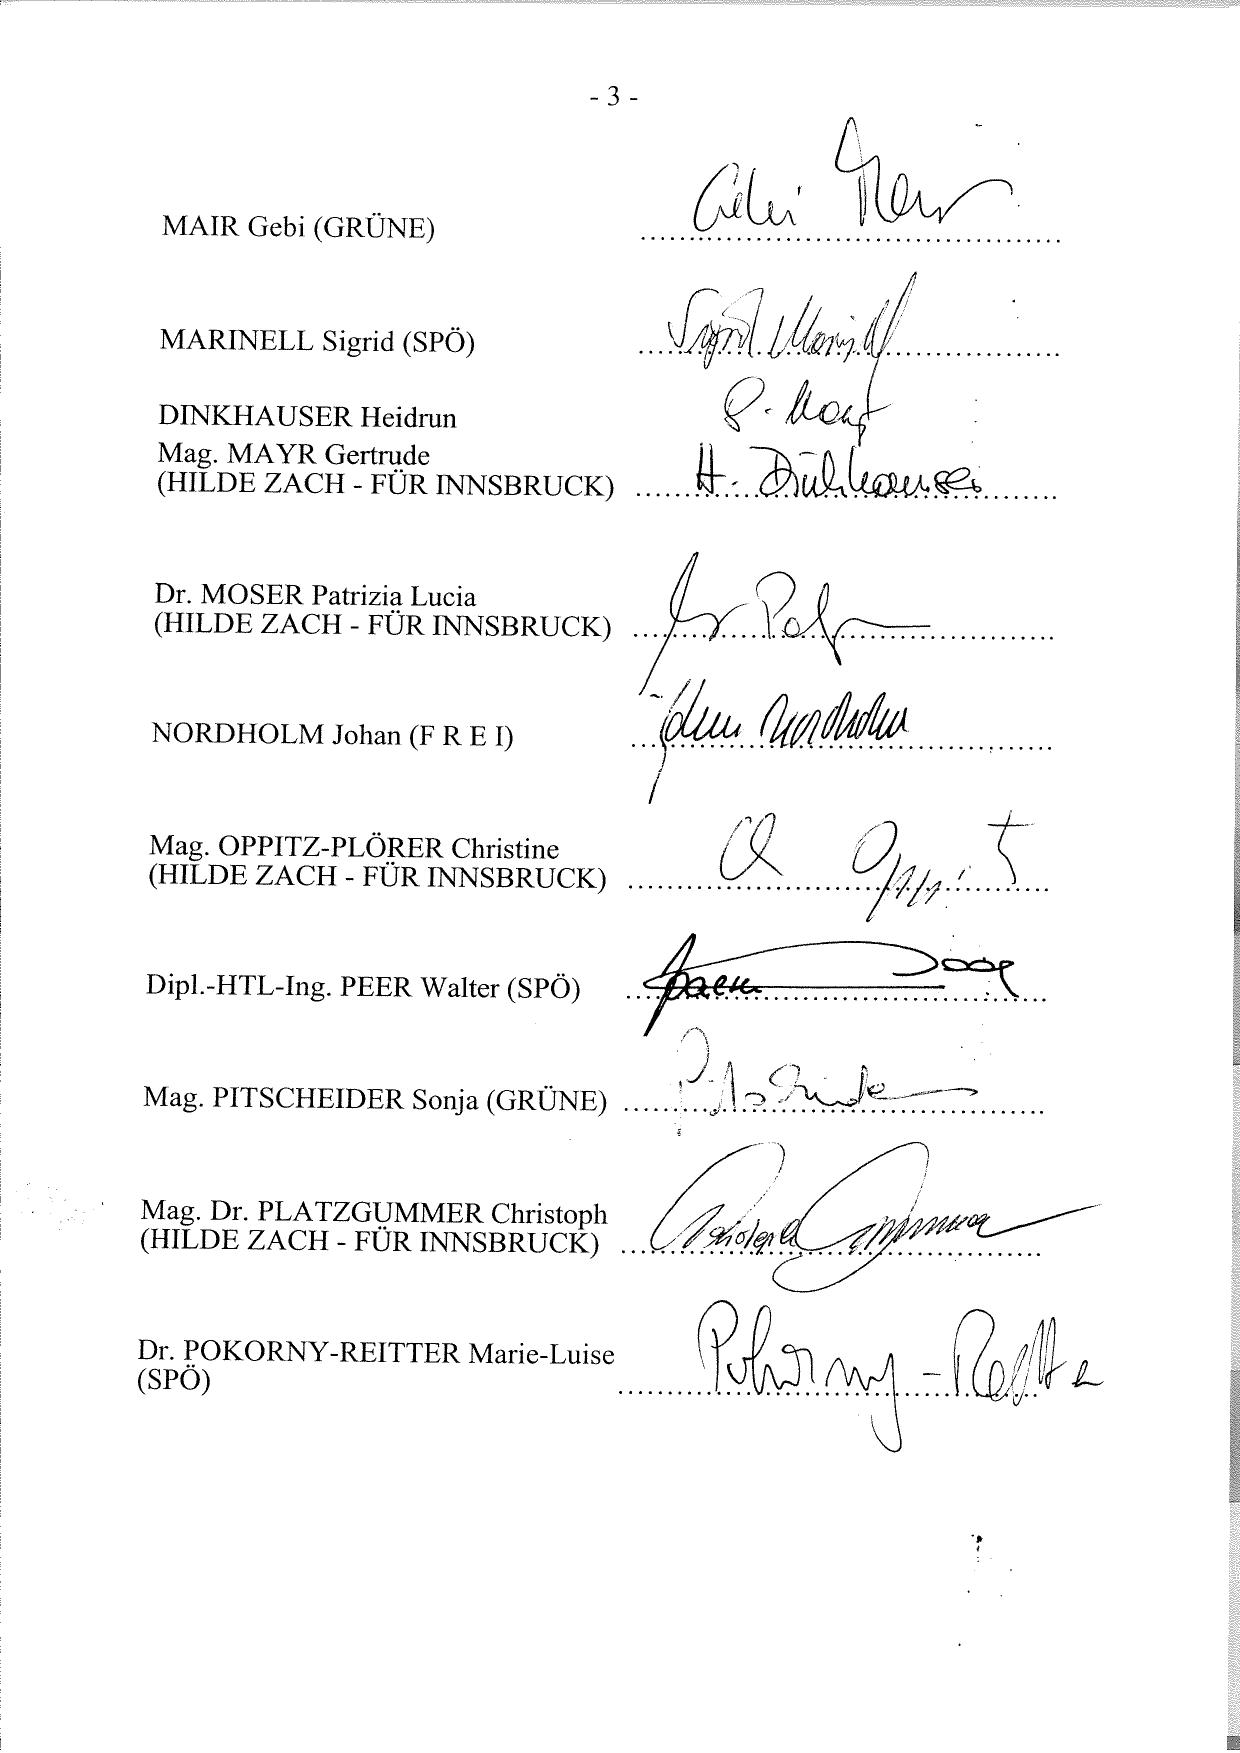 - 3 -
MAIR Gebi (GRÜNE) Gebi Mair
MARINELL Sigrid (SPÖ) Sigrid Marinell
DINKHAUSER Heidrun
Mag. MAYR Gertrude G. Mayr
(HILDE ZACH - FÜR INNSBRUCK) H. Dinkhauser
Dr. MOSER Patrizia Lucia
(HILDE ZACH - FÜR INNSBRUCK)
NORDHOLM Johan (F R E I) Johan Nordholm
Mag. OPPITZ-PLÖRER Christine
(HILDE ZACH - FÜR INNSBRUCK)
Dipl.-HTL-Ing. PEER Walter (SPÖ)
Mag. PITSCHEIDER Sonja (GRÜNE) Pitscheider
Mag. Dr. PLATZGUMMER Christoph
(HILDE ZACH - FÜR INNSBRUCK)
Dr. POKORNY-REITTER Marie-Luise
(SPÖ) Pokorny-Reitter